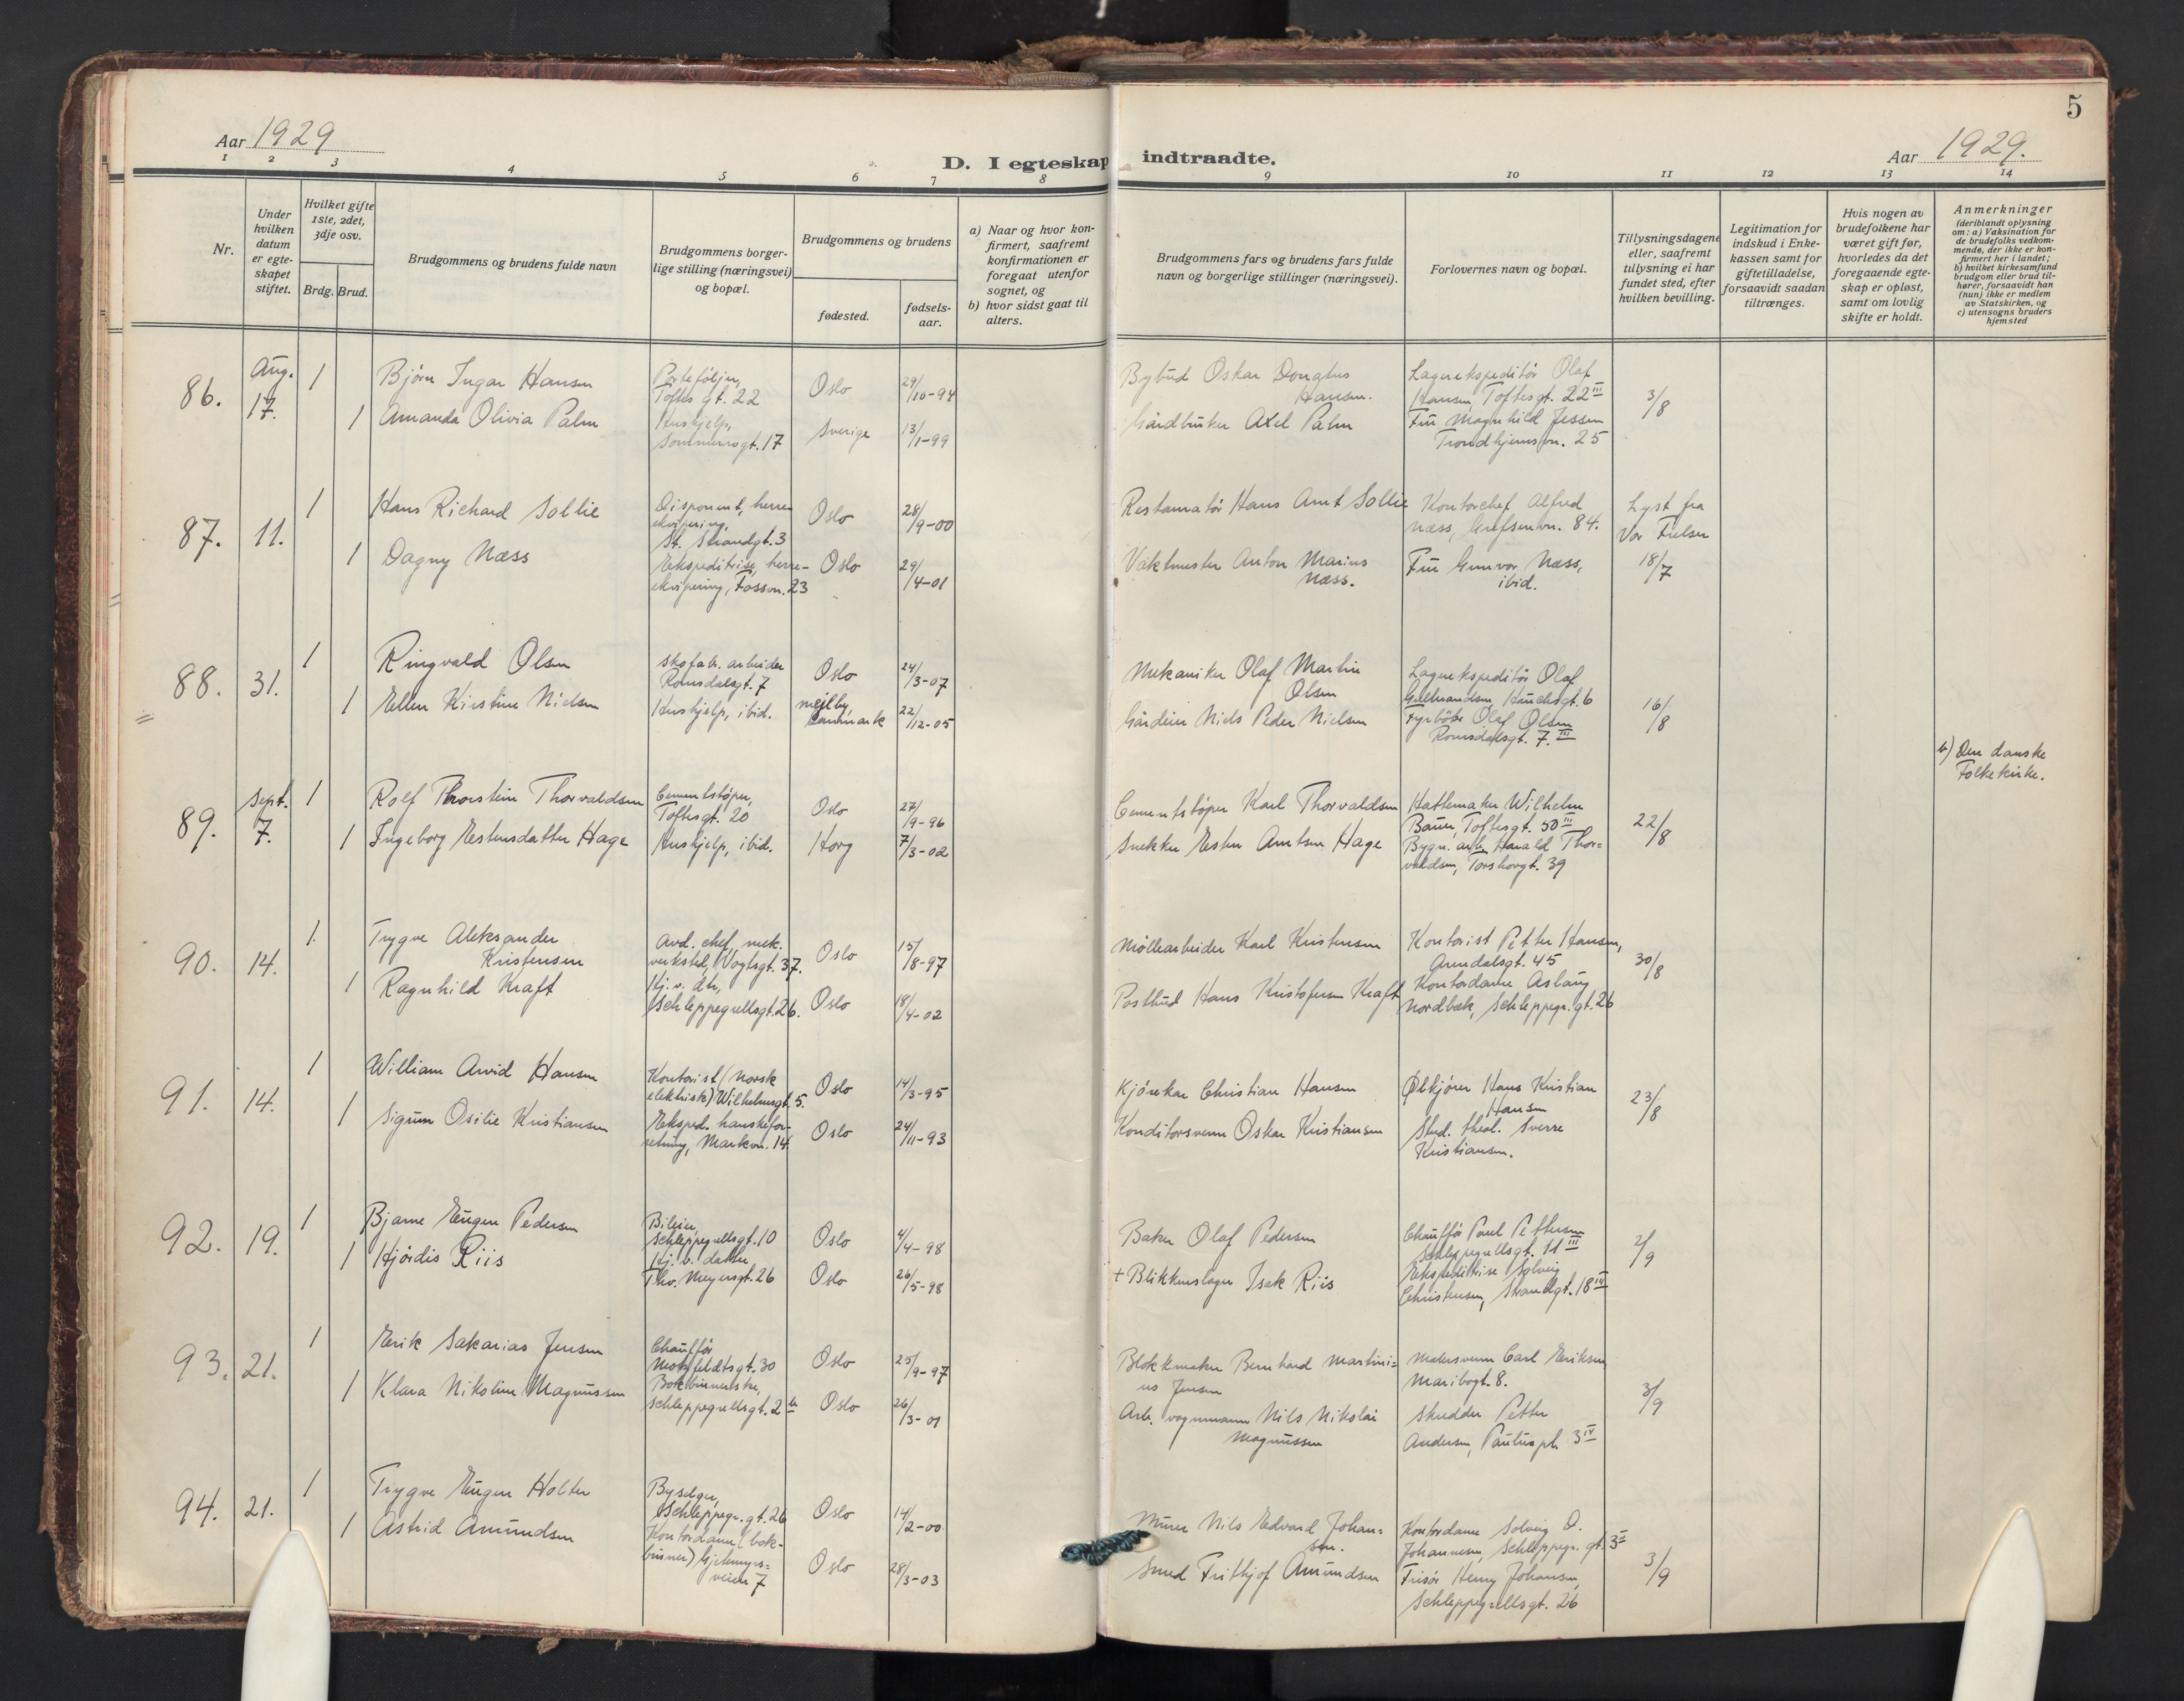 5
Aar 1929
D. I egteskap indtraadte.
Aar 1929.
1 2 3 4 5 6 7 8 9 10 11 12 13 14
Nr.
Under hvilken datum er egteskapet stiftet.
Hvilket gifte 1ste, 2det, 3dje osv.
Brdg. Brud.
Brudgommens og brudens fulde navn
Brudgommens borgerlige stilling (næringsvei) og bopæl.
Brudgommens og brudens
fødested.
fødselsaar.
a) Naar og hvor konfirmert, saafremt konfirmationen er foregaat utenfor sognet, og
b) hvor sidst gaat til alters.
Brudgommens fars og brudens fars fulde navn og borgerlige stillinger (næringsvei).
Forlovernes navn og bopæl.
Tillysningsdagene eller, saafremt tillysning ei har fundet sted, efter hvilken bevilling.
Legitimation for indskud i Enkekassen samt for giftetilladelse, forsaavidt saadan tiltrænges.
Hvis nogen av brudefolkene har været gift før, hvorledes da det foregaaende egteskap er opløst, samt om lovlig skifte er holdt.
Anmerkninger
(deriblandt oplysning om: a) Vaksination for de brudefolks vedkommende, der ikke er konfirmert her i landet; b) hvilket kirkesamfund brudgom eller brud tilhører, forsaavidt han (hun) ikke er medlem av Statskirken, og c) utensogns bruders hjemsted
86. Aug. 17.
1 Bjørn Ingar Hansen
Porteføljer,
Toftes gt. 22
Oslo 29/10-94
Bybud Oskar Douglas
Hansen.
Lagerekspeditør Olaf
Hansen, Toftesgt. 22 III
3/8
1 Amanda Olivia Palm
Huskjelp,
Sommerrogt. 17
Sverige 13/1-99
Gårdbruker Axel Palm
Frü Magnhild Jessen
Trondhjemsvn. 25
87. 11.
1 Hans Richard Sollie
Disponent, herre-
ekvipering,
St. Strandgt. 3
Oslo 28/9-00
Restauratør Hans Arnt Sollie
Kontorchef Alfred
Næss, Grefsenvn. 84.
Lyst fra
Vor Frelser
18/7
1 Dagny Næss
Ekspeditrise, herre-
ekvipering, Fossvn. 23
Oslo 29/4-01
Vaktmester Anton Marius
Næss.
Frü Gunvor Næss,
ibid.
88. 31.
1 Ringvald Olsen
Skofab. arbeider
Romsdalsgt. 7
Oslo 24/3-07
Mekaniker Olaf Martin
Olsen
Lagerekspeditør Olaf
Hauchsgt. 6
16/8
1 Ellen Kirstine Nielsen
Huskjelp, ibid.
Mejlby,
Danmark 22/12-05
Gårdeier Niels Peder Nielsen
Fyrbøter Olaf Olsen
Romsdalsgt. 7. III
b) Den danske
Folkekirke.
89. Sept. 7.
1 Rolf Thorstein Thorvaldsen
Cementstøper,
Toftesgt. 20
Oslo 27/9-96
Cementstøper Karl Thorvaldsen
Hattemaker Wilhelm
Bauer, Toftesgt. 50 III
22/8
1 Ingeborg Estensdatter Hage
Huskjelp, ibid.
Horg 7/3-02
Snekker Esten Arntsen Hage
Bygn. arb. Harald Thor-
valdsen, Torshovgt. 39
90. 14.
1 Trygve Aleksander
Kristensen
Avd. chef, mek.
verksted, Vogtsgt. 37.
Oslo 15/8-97
Møllearbeider Karl Kristensen
Kontorist Petter Hansen,
Arendalsgt. 45
30/8
1 Ragnhild Kraft
Hj. v. dtr,
Schleppegrellsgt. 26.
Oslo 18/4-02
Postbud Hans Kristofersen Kraft
Kontordame Aslaug
Nordbæk, Schleppegr. gt. 26
91. 14.
1 William Arvid Hansen
Kontorist (Norsk
elektrisk) Wilhelmsgt. 5.
Oslo 14/3-95
Kjørekar Christian Hansen
Ølkjører Hans Kristian
Hansen
23/8
1 Sigrun Osilie Kristiansen
Eksped. hanskefor-
retning, Markvn. 14
Oslo 24/11-93
Konditorsvenn Oskar Kristiansen
Stud. theol. Sverre
Kristiansen.
92. 19.
1 Bjarne Eugen Pedersen
Bileier,
Schleppegrellsgt. 10
Oslo 4/4-98
Baker Olaf Pedersen
Chauffør Paul Pettersen
Schleppegrellsgt. 11 III
2/9
1 Hjørdis Riis
Hj. v. datter
Thv. Meyersgt. 26
Oslo 26/5-98
+ Blikkenslager Isak Riis
Ekspeditrise Solveig
Christensen, Strandgt. 18
93. 21.
1 Erik Sakarias Jensen
Chauffør
Mosfeldtsgt. 30
Oslo 25/9-97
Blokkmaker Bernhard Martini-
us Jensen
Malersvenn Carl Eriksen
Maribogt. 8.
3/9
1 Klara Nikoline Magnussen
Bokbinnerske,
Schleppegrellsgt. 2 b
Oslo 26/3-01
Arb. vognmann Nils Nikolai
Magnussen
Skredder Petter
Andersen, Pauluspl. 3 IV
94. 21.
1 Trygve Eugen Holter
Byselger,
Schleppegr. gt. 26
Oslo 14/2-00
Murer Nils Edvard Johan-
sen.
Kontordame Solveig O.
Johannesen, Schleppegr. gt. 3
3/9
1 Astrid Amundsen
Kontordame (bok-
binneri) Gjetemyrs-
veien 7
Oslo 28/3-03
Smed Frithjof Amundsen
Frisør Henry Johansen,
Schleppegrellsgt. 26